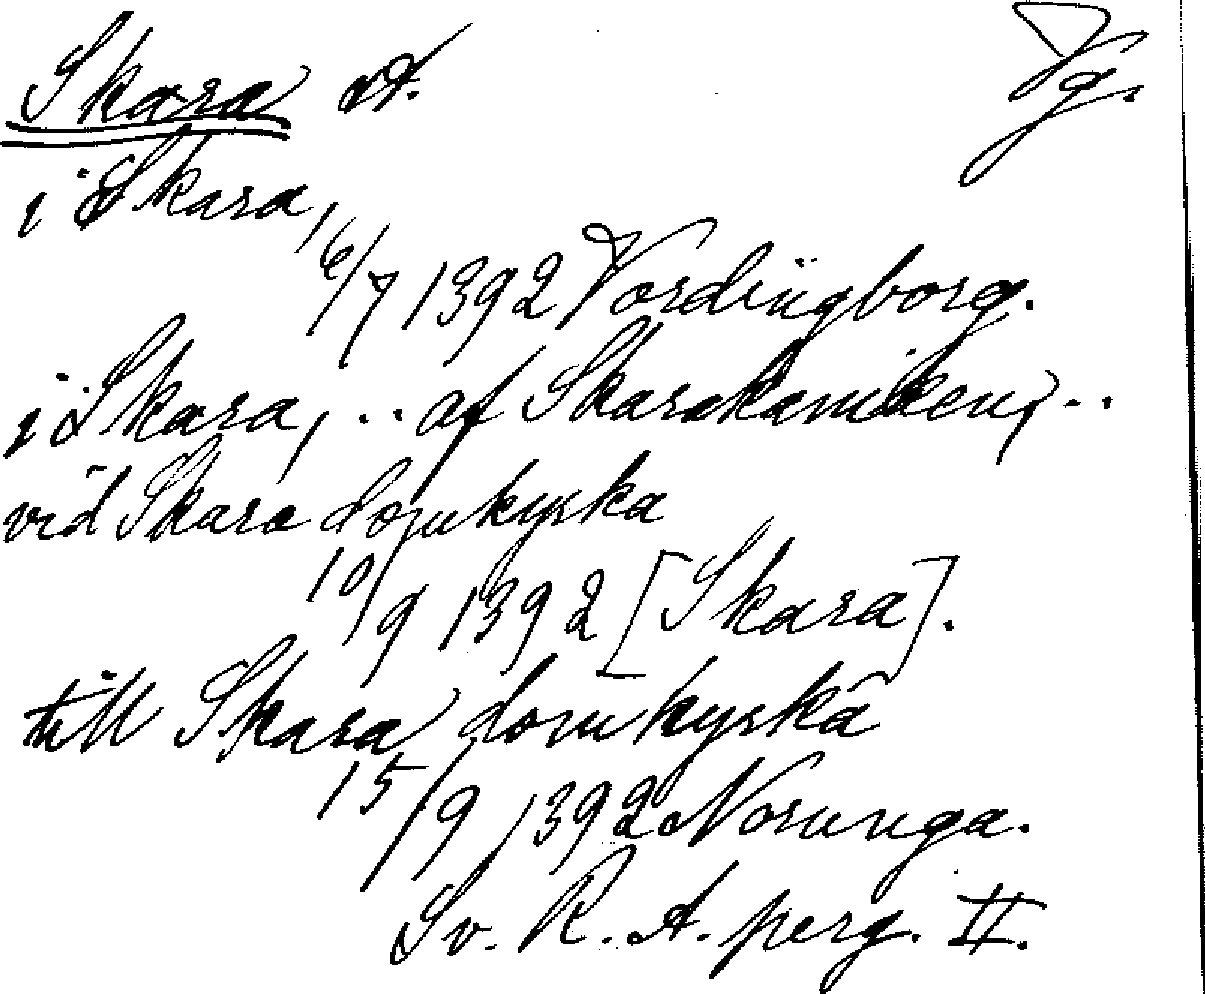 Skara st. Vg.
i Skara,
16/7 1392 Vordingborg.
i Skara, .. af Skarakaniken, ..
vid Skara domkyrka
10/9 1392 [Skara].
till Skara domkyrka
15/9 1392 Norunga.
Sv. R. A. perg. II.